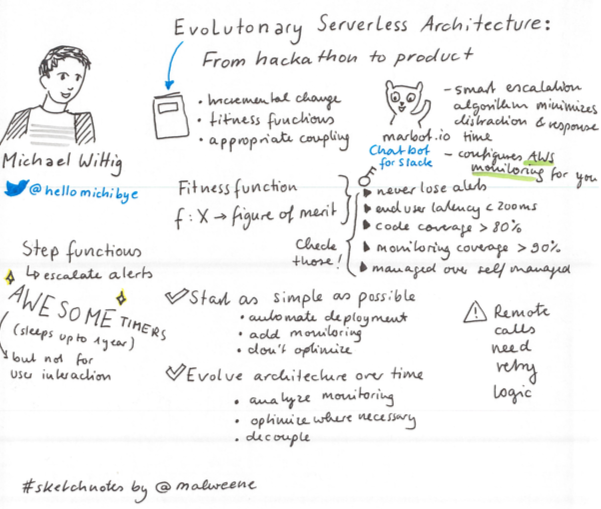 Evolutonary Serverless Architecture:
From hackathon to product
Michael Wittig
@hellomichibye
• Incremental change
• fitness functions
• appropriate coupling
marbot.io
Chatbot
for Slack
- smart escalation
algorithm minimizes
distraction & response
time
- configures AWS
monitoring for you
Fitness function
f: X → figure of merit
Check
those!
▶ never lose alerts
▶ end user latency < 200ms
▶ code coverage > 80%
▶ monitoring coverage > 90%
▶ managed over self managed
Step functions
↳ escalate alerts
AWESOME TIMERS
(sleeps up to 1 year)
but not for
user interaction
✓ Start as simple as possible
• automate deployment
• add monitoring
• don't optimize
✓ Evolve architecture over time
• analyze monitoring
• optimize where necessary
• decouple
Remote
calls
need
retry
logic
#sketchnotes by @malweene